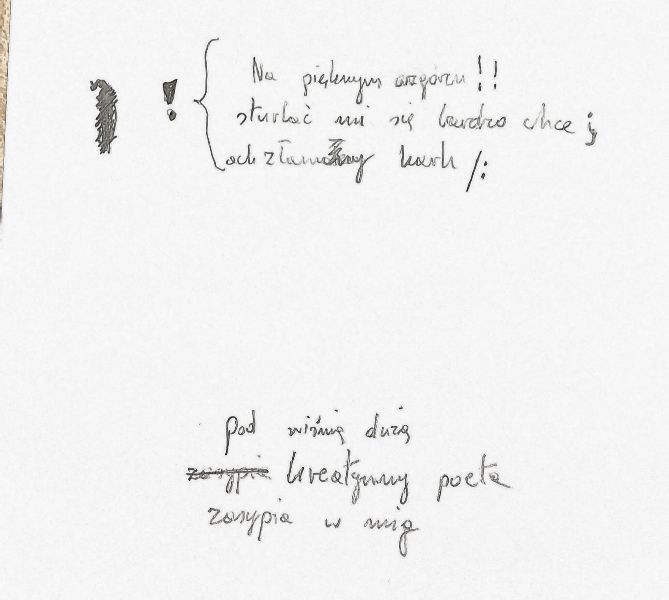 ! { Na pięknym wzgórzu !!
sturlać mi się bardzo chce ;
och złamany kark /:
pod wiśnią dużą
zasypia kreatywny poeta
zasypia w mig